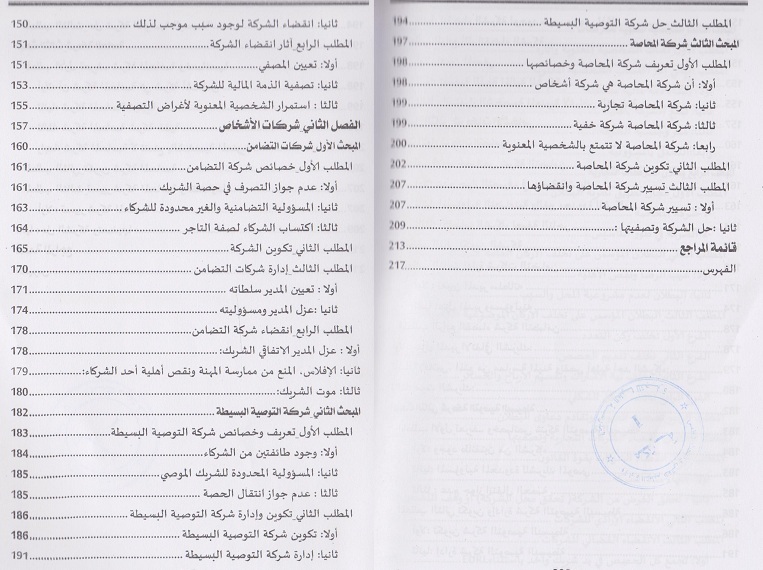 ثانيا: انقضاء الشركة لوجود سبب موجب لذلك ........ 150
المطلب الرابع_آثار انقضاء الشركة ........ 151
أولا: تعيين المصفي ........ 151
ثانيا: تصفية الذمة المالية للشركة ........ 153
ثالثا : استمرار الشخصية المعنوية لأغراض التصفية ........ 155
الفصل الثاني_شركات الأشخاص ........ 157
المبحث الأول_شركات التضامن ........ 160
المطلب الأول_خصائص شركة التضامن ........ 161
أولا: عدم جواز التصرف في حصة الشريك ........ 161
ثانيا: المسؤولية التضامنية والغير محدودة للشركاء ........ 163
ثالثا: اكتساب الشركاء لصفة التاجر ........ 164
المطلب الثاني_تكوين الشركة ........ 165
المطلب الثالث_إدارة شركات التضامن ........ 170
أولا : تعيين المدير سلطاته ........ 171
ثانيا :عزل المدير ومسؤوليته ........ 174
المطلب الرابع_انقضاء شركة التضامن ........ 178
أولا : عزل المدير الاتفاقي الشريك: ........ 178
ثانيا: الإفلاس، المنع من ممارسة المهنة ونقص أهلية أحد الشركاء: ........ 179
ثالثا: موت الشريك: ........ 180
المبحث الثاني_شركة التوصية البسيطة ........ 182
المطلب الأول_تعريف وخصائص شركة التوصية البسيطة ........ 183
أولا: وجود طائفتين من الشركاء ........ 184
ثانيا: المسؤولية المحدودة للشريك الموصي ........ 185
ثالثا : عدم جواز انتقال الحصة ........ 185
المطلب الثاني_تكوين وإدارة شركة التوصية البسيطة ........ 186
أولا: تكوين شركة التوصية البسيطة ........ 186
ثانيا: إدارة شركة التوصية البسيطة ........ 191
المطلب الثالث_حل شركة التوصية البسيطة ........ 194
المبحث الثالث_شركة المحاصة ........ 197
المطلب الأول_تعريف شركة المحاصة وخصائصها ........ 198
أولا: أن شركة المحاصة هي شركة أشخاص ........ 198
ثانيا: شركة المحاصة تجارية ........ 199
ثالثا: شركة المحاصة شركة خفية ........ 199
رابعا: شركة المحاصة لا تتمتع بالشخصية المعنوية ........ 200
المطلب الثاني_تكوين شركة المحاصة ........ 202
المطلب الثالث_تسيير شركة المحاصة وانقضاؤها ........ 207
أولا : تسيير شركة المحاصة ........ 207
ثانيا :حل الشركة وتصفيتها : ........ 209
قائمة المراجع ........ 213
الفهرس ........ 217